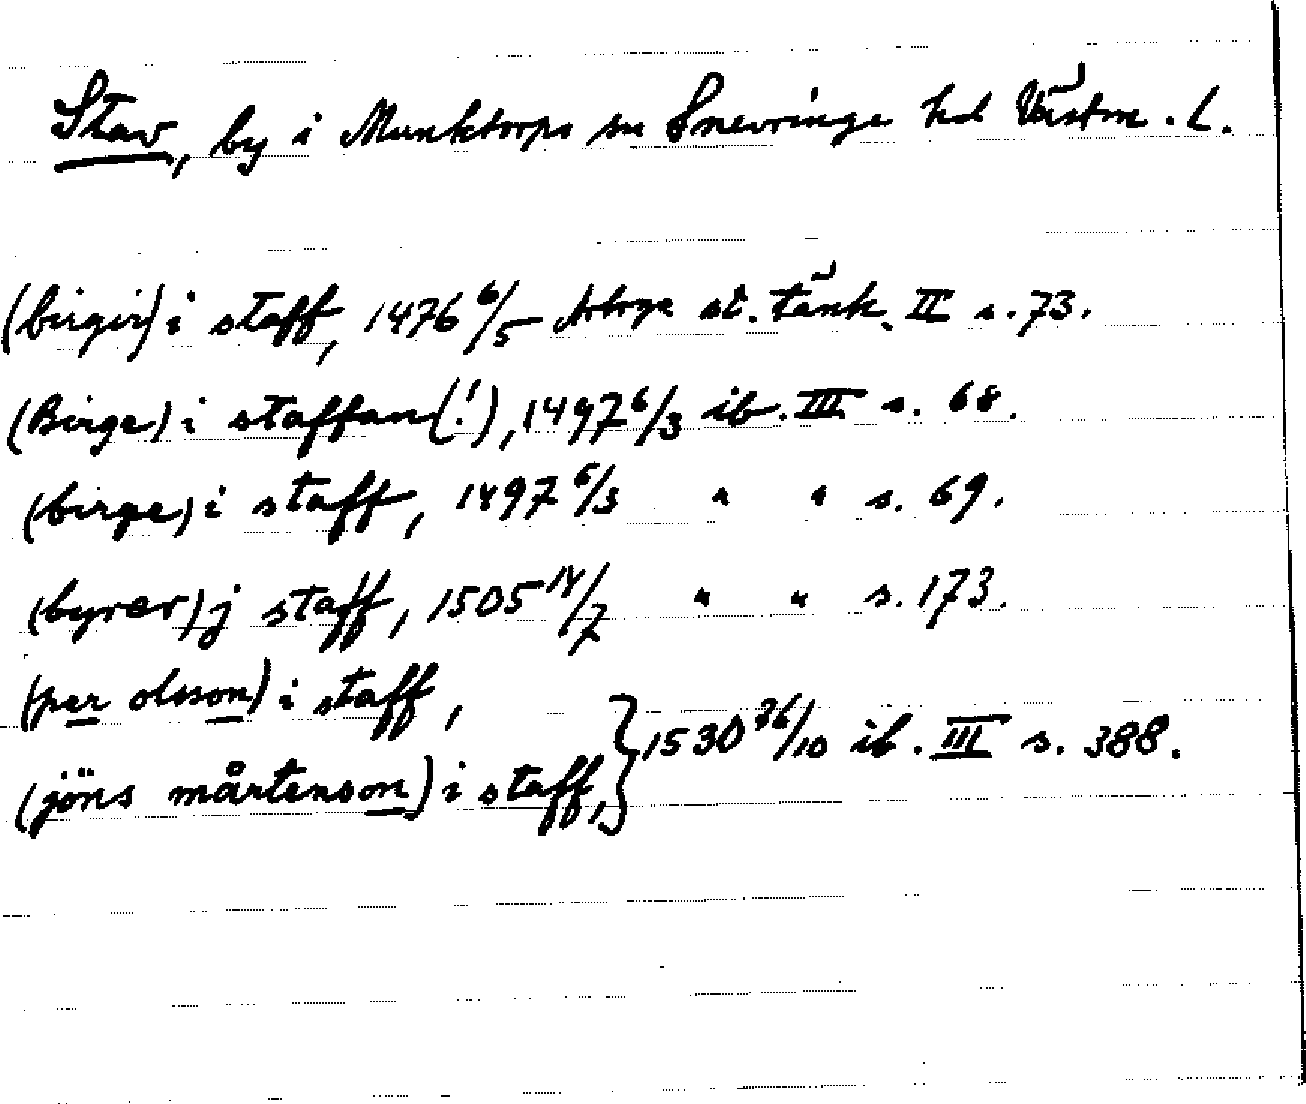 Stav, by i Munktorps sn Snevringe hd Västm. L.
(birgir) i staff, 1476 6/5 Arboga st. tänk. II s. 73.
(Birge) i staffan (!), 1497 6/3 ib. III s. 68.
(birge) i staff, 1497 6/3 " " s. 69.
(byrer) j staff, 1505 14/7 " " s. 173.
(per olsson) i staff,
(jöns mårtenson) i staff, } 1530 26/10 ib. III s. 388.